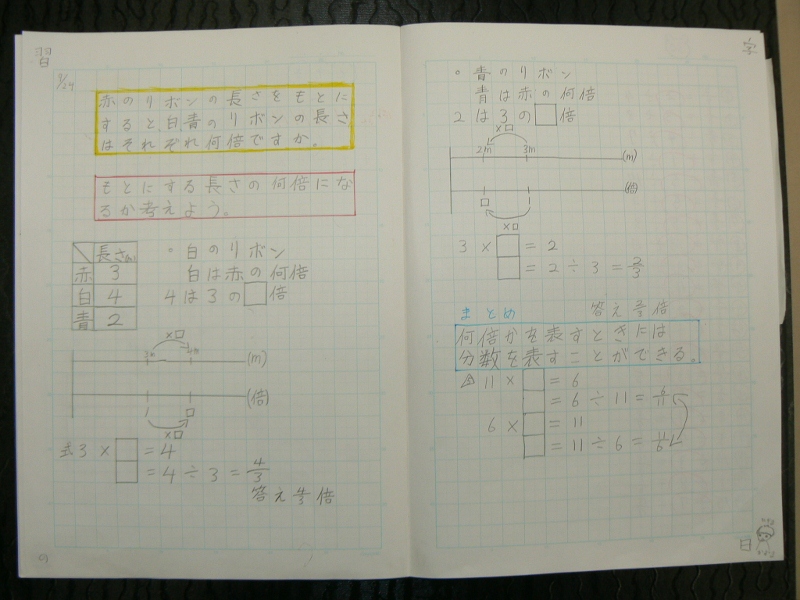 習
赤のリボンの長さをもとに
すると白青のリボンの長さ
はそれぞれ何倍ですか。
もとにする長さの何倍にな
るか考えよう。
長さ(m)
赤 3
白 4
青 2
・白のリボン
白は赤の何倍
4は3の□倍
×□
3m 4m
(m)
(倍)
1 □
×□
3×□=4
□=4÷3=4/3
答え 4/3 倍
学
・青のリボン
青は赤の何倍
2は3の□倍
×□
2m 3m
(m)
(倍)
□ 1
×□
3×□=2
□=2÷3=2/3
答え 2/3 倍
まとめ
何倍かを表すときには
分数を表すことができる。
11×□=6
□=6÷11=6/11
6×□=11
□=11÷6=11/6
白